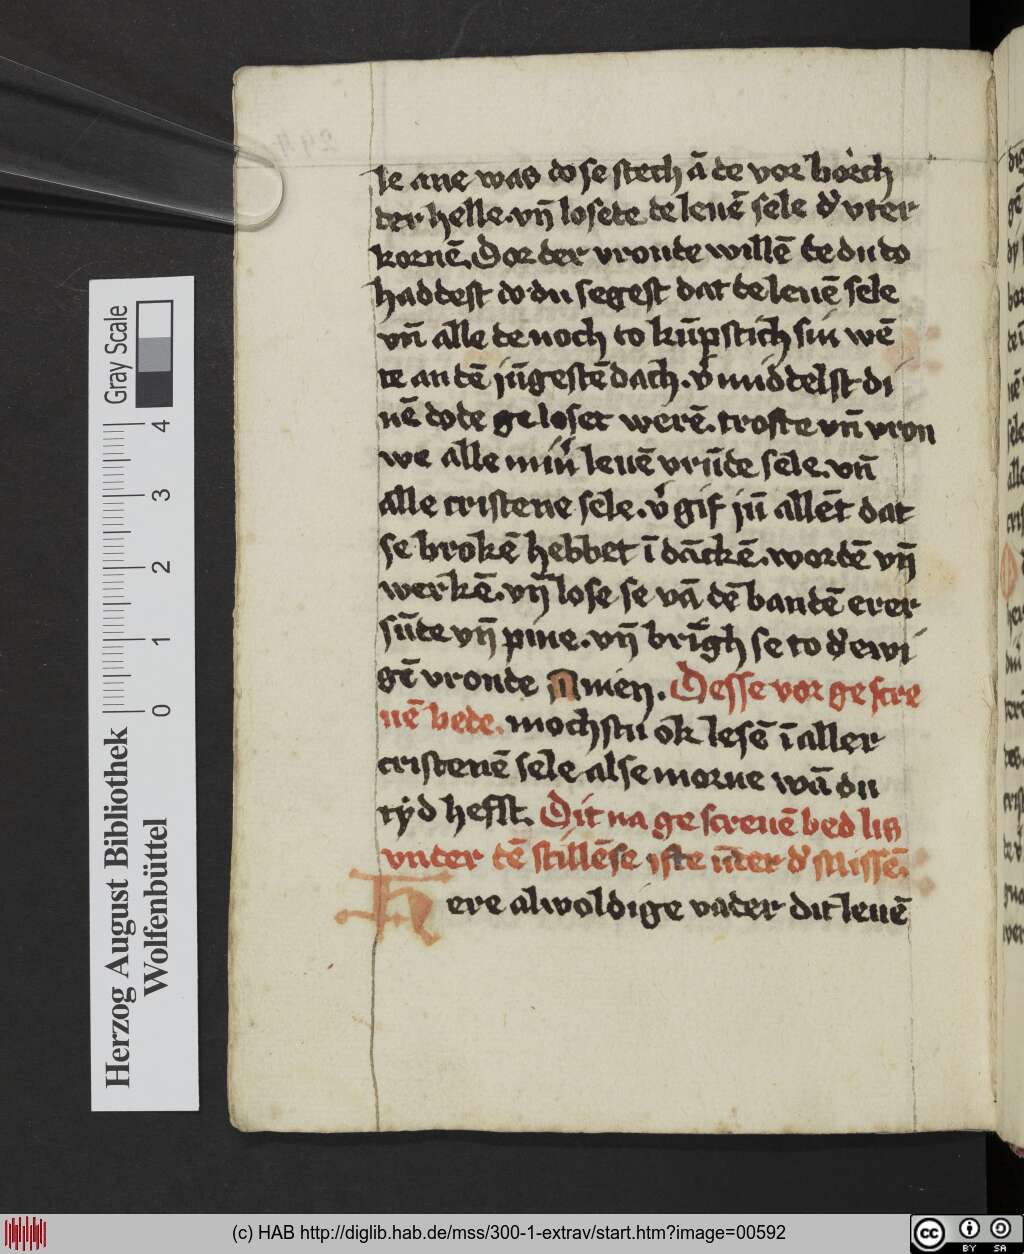 le ane was do se stech ā de vor boͤrch
der helle. vn̄ losede de leuē sele d' vter
kornē. Dor der vroude willē de du do
haddest do du segest dat de leuē sele
vn̄ alle de noch to kūpstich sin wē
te an dē jūgestē dach. v̄ middelst di
nē dode ge loset werē. troste vn̄ vron
we alle min' leuē vrūde sele. vn̄
alle cristene sele. v' gif jū allēt dat
se brokē hebbet ī dāckē. wordē vn̄
werkē. vn̄ lose se vā dē bandē erer
sūde vn̄ pine. vn̄ brīgh se to d' ewi
gē vroude Amen. Desse vor ge scre
uē bede. mochstu ok lesē ī aller
cristenē sele alse morne wā du
tẏd hefst. Dit na ge screuē bed lis
vnder dē stillēse iste ūder d' Missē.
Here alwoldige vader du leuē
Gray Scale
0 1 2 3 4
Herzog August Bibliothek
Wolfenbüttel
(c) HAB http://diglib.hab.de/mss/300-1-extrav/start.htm?image=00592
cc BY SA